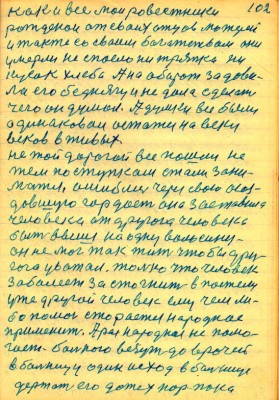 102
как и все мои ровестники
рождении от своих отцов мотерей
и такте со своим богатством они
умерли не спосло ни тряпка ни
кусок хлеба А на оборот задови-
ла его беднягу и не дала сделать
чего он думал. А думки все были
одинакови остатся на веки
веков в живых.
не той дорогой все пошли не
тем поступкам стали зани-
матся, ошиблись через свою
гордост она заставила
человека от другога человека
быть выши на одну волосину-
он не мог так жить чтобы дру-
гога уважал. только что человек
заболеет застогнит в постели
уже другой человек ему чем ли-
бо помоч старается народное
применит. А при народная не помо-
гает больного везут до врачей
в больницу и один исход в больнице
держат его до тех пор пока